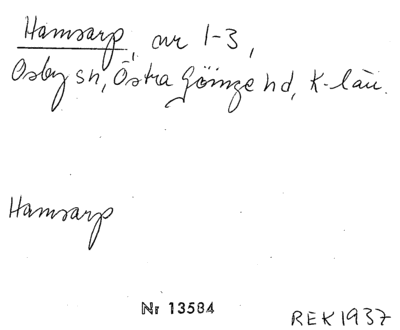 Hamsarp, nr 1-3,
Osby sn, Östra Göinge hd, K-län.
Hamsarp
Nr 13584
REK1937